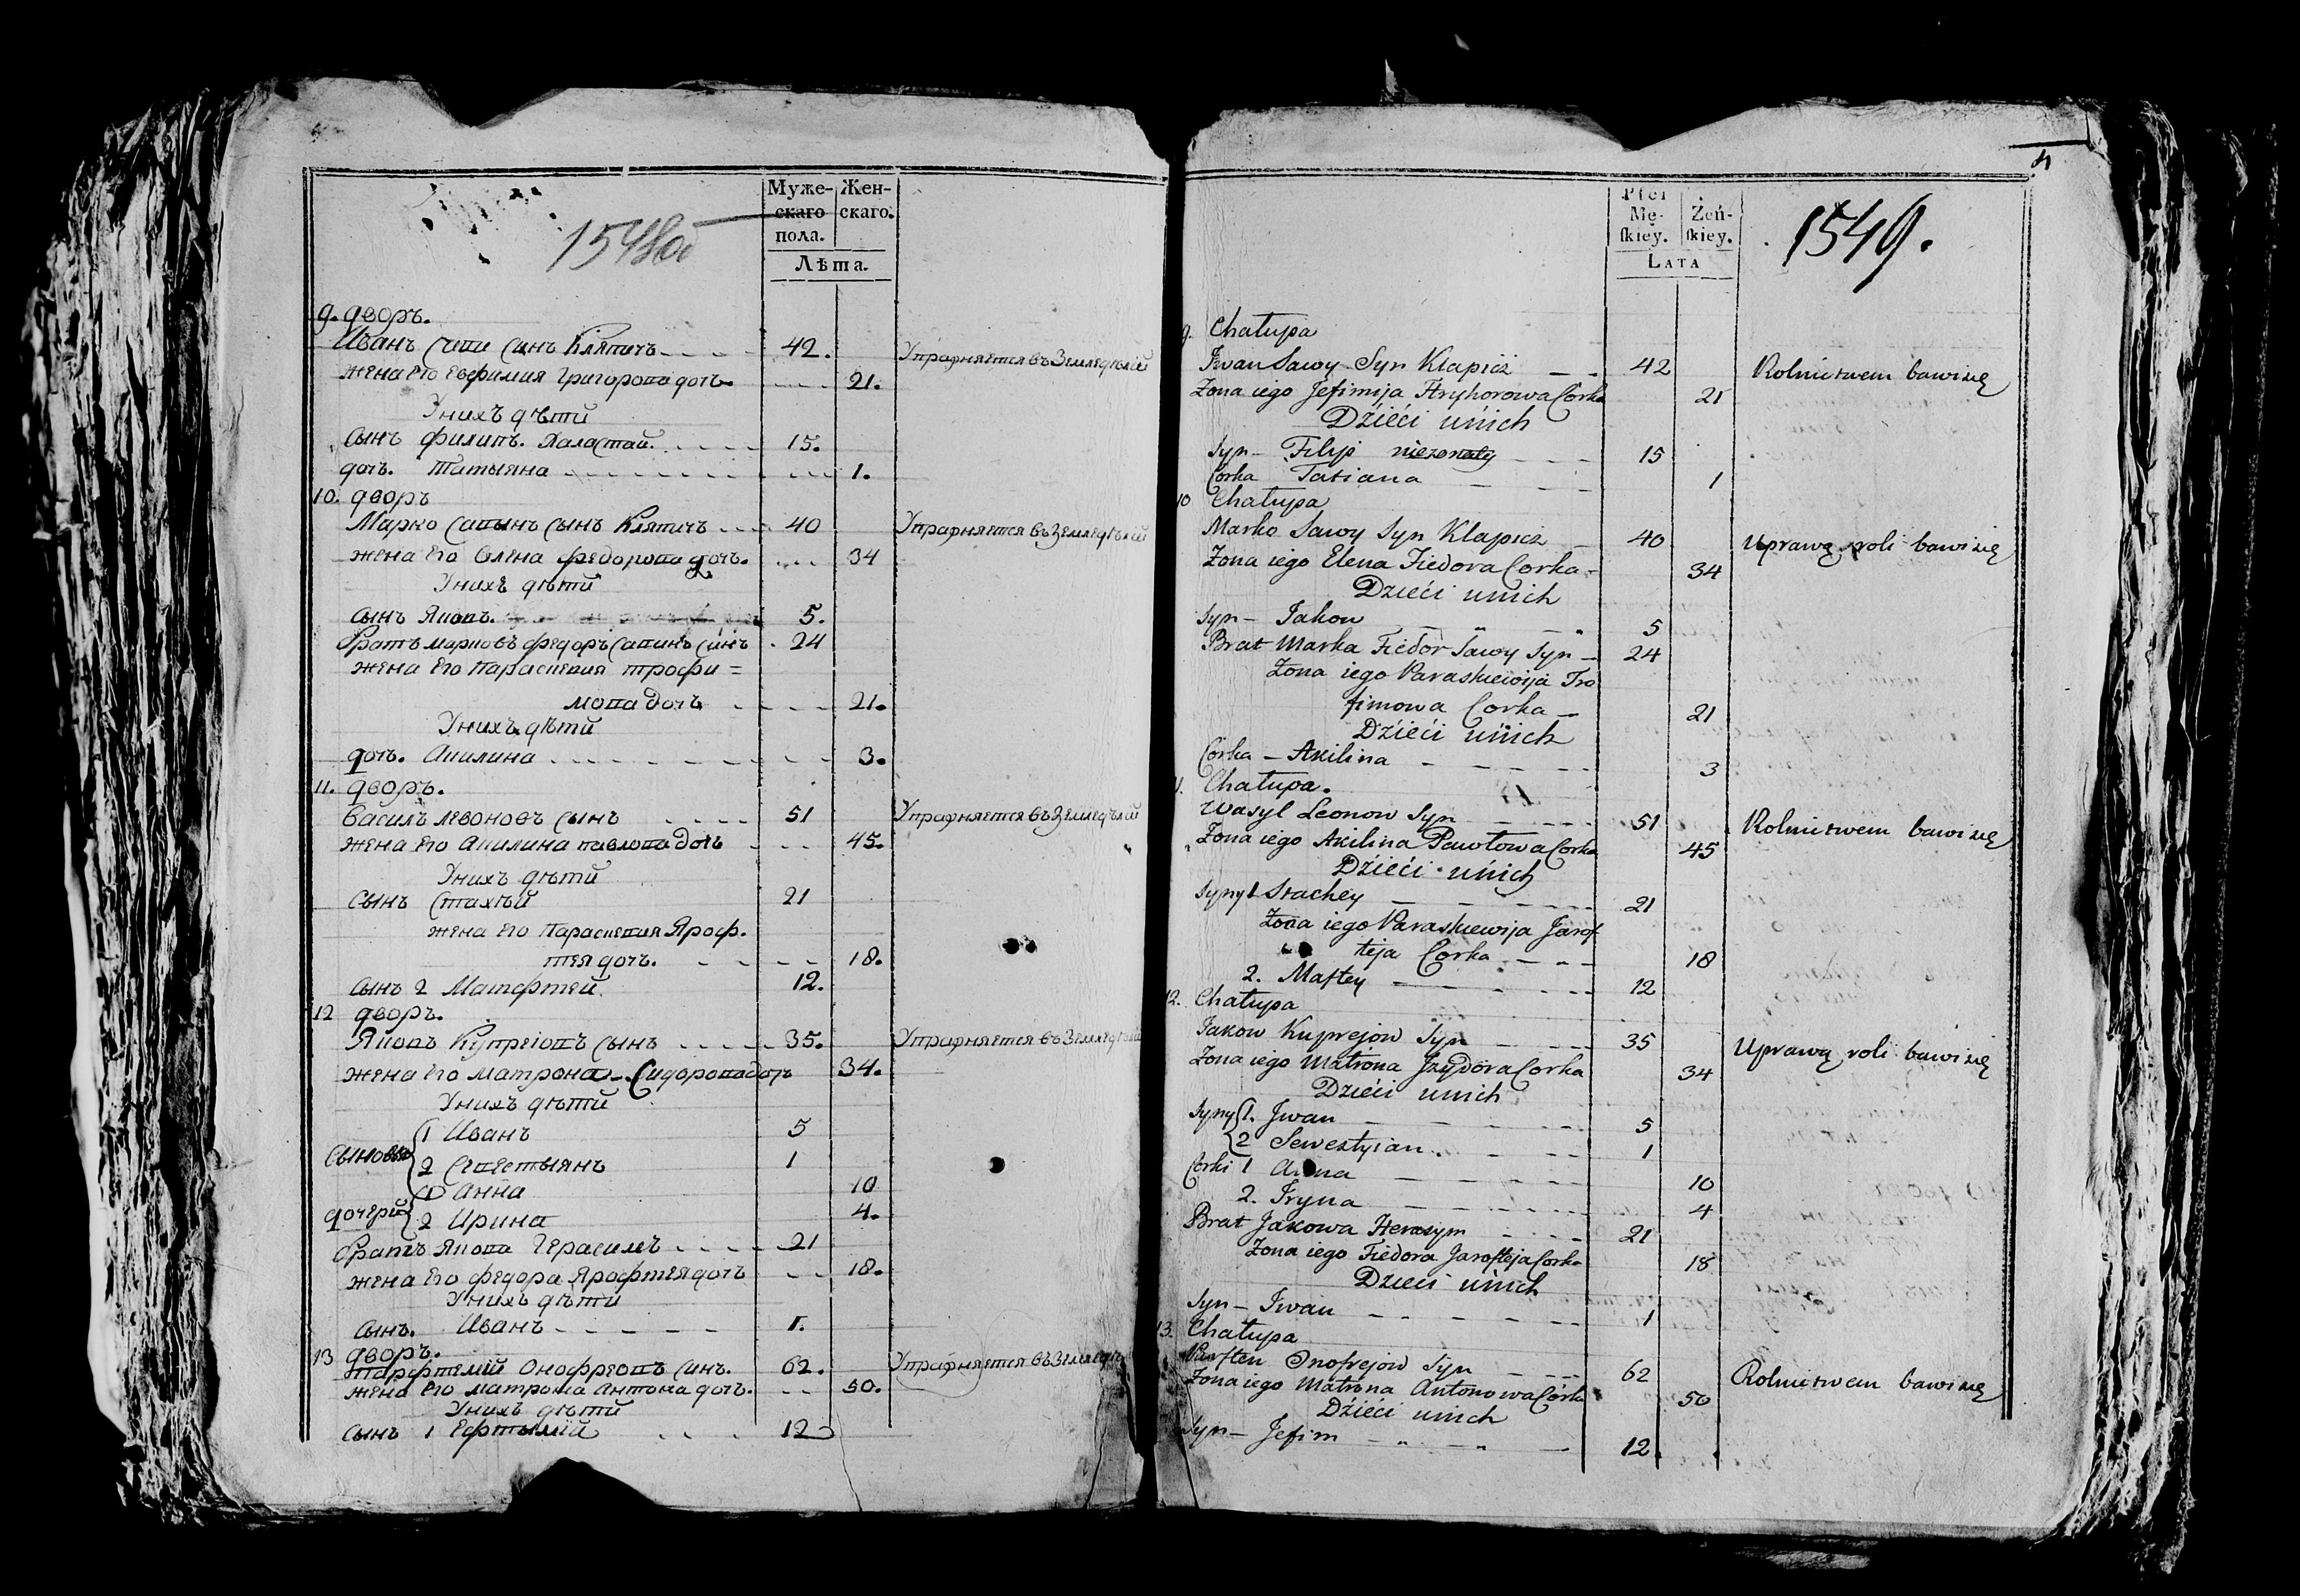 1548об
Муже- Жен-
скаго скаго.
пола.
Лѣта.
9. дворъ.
Иванъ Савы Сынъ Кляпичъ 42. Упражняется въ Земледѣлій
жена Его Евфимия Григорова дочь 21.
У нихъ дѣти
Сынъ Филипъ. Халастай. 15.
дочь. Татыяна 1.
10. дворъ
Марко Савынъ Сынъ Кляпичъ 40 Упражняется въ Земледѣлій
жена Его Олена Федорова дочь. 34
У нихъ дѣти
Сынъ Яковъ. 5.
Братъ марковъ Федоръ Савинъ Синъ 24
жена Его Параскевия трофи=
мова дочь 21.
У нихъ дѣти
дочь. Акилина 3.
11. дворъ.
Василъ левоновъ Сынъ 51 Упражняется въ Земледѣлій
жена Его Акилина павлова дочь 45.
У нихъ дѣти
Сынъ Стахѣй 21
жена Его Параскевия Яроф.
тея дочь. 18.
Сынъ 2 Матфтей 12.
12 дворъ.
Яковъ Купреiовъ Сынъ 35. Упражняется въ Земледѣлій
жена Его Матрона Сидорова дочь 34.
У нихъ дѣти
1 Иванъ 5
Сыновья 2 Севестыянъ 1
1 Анна 10
дочерй 2 Ирина 4.
Братъ Якова Герасимъ 21
жена Его Федора Ярофтея дочь 18.
У нихъ дѣти
Сынъ. Иванъ 1.
13 дворъ.
Парфтемій Онофреовъ Синъ. 62. Упражняется въ Земледѣ
жена Его матрона Антона дочь. 50.
У нихъ дѣти
Сынъ 1 Ефтымій 12
4
Płci
Mę- Żeń-
skiey. skiey.
LATA
1549.
9. Chałupa
Iwan Sawy Syn Klapicz 42 Rolnictwem bawi się
Żona iego Jefimija Hryhorowa Corka 21
Dzieći u nich
Syn - Filip niezonaty 15
Corka Tatiana 1
10 Chałupa
Marko Sawy Syn Klapicz 40 Uprawą roli bawi się
Żona iego Elena Fiedora Corka 34
Dzieći u nich
Syn - Jakow 5
Brat Marka Fiedor Sawy Syn 24
Żona iego Paraskiewija Tro
fimowa Corka 21
Dzieći u nich
Corka - Akilina 3
11. Chałupa.
Wasyl Leonow Syn 51 Rolnictwem bawi się
Żona iego Akilina Pawłowa Corka 45
Dzieći u nich
Syny 1 Stachey 21
Żona iego Paraskiewija Jarof
teja Corka 18
2. Maftey 12
12. Chałupa
Jakow Kuprejow Syn 35 Uprawą roli bawi się
Żona iego Matrona Jzydora Corka 34
Dzieći u nich
Syny 1. Jwan 5
2 Sewestyian. 1
Corki 1 Anna 10
2. Jryna 4
Brat Jakowa Herasym 21
Żona iego Fiedora Jarofteja Corka 18
Dzieci u nich
Syn - Iwan 1
13. Chałupa
Parften Onofrejow Syn 62 Rolnictwem bawi się
Żona iego Matrona Antonowa Córka 50
Dzieci u nich
Syn - Jefim 12